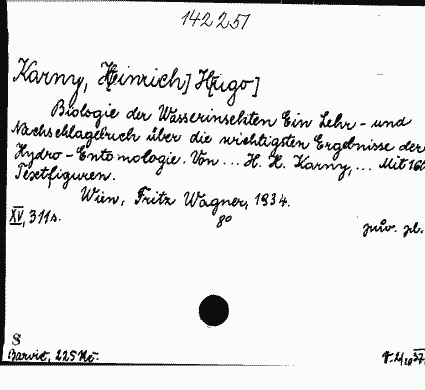 142251
Karny, H[einrich] H[ugo]
Biologie der Wasserinsekten Ein Lehr- und
Nachschlagebuch über die wichtigsten Ergebnisse der
Hydro-Entomologie. Von ... H. H. Karny, ... Mit 160
Textfiguren.
Wien, Fritz Wagner, 1934.
XV, 311 s. 8°
pův. pl.
S
Barvič, 225 Kč.